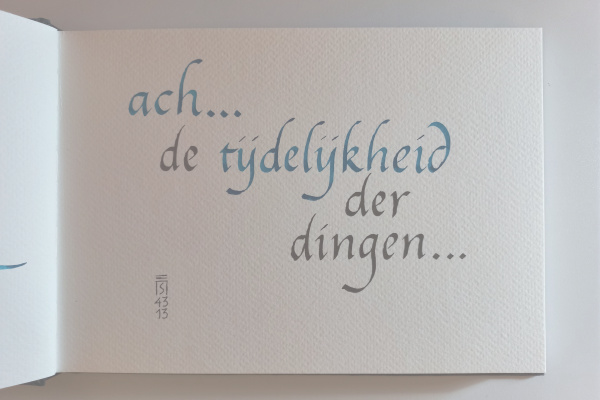 ach...
de tijdelijkheid
der
dingen...
43
13